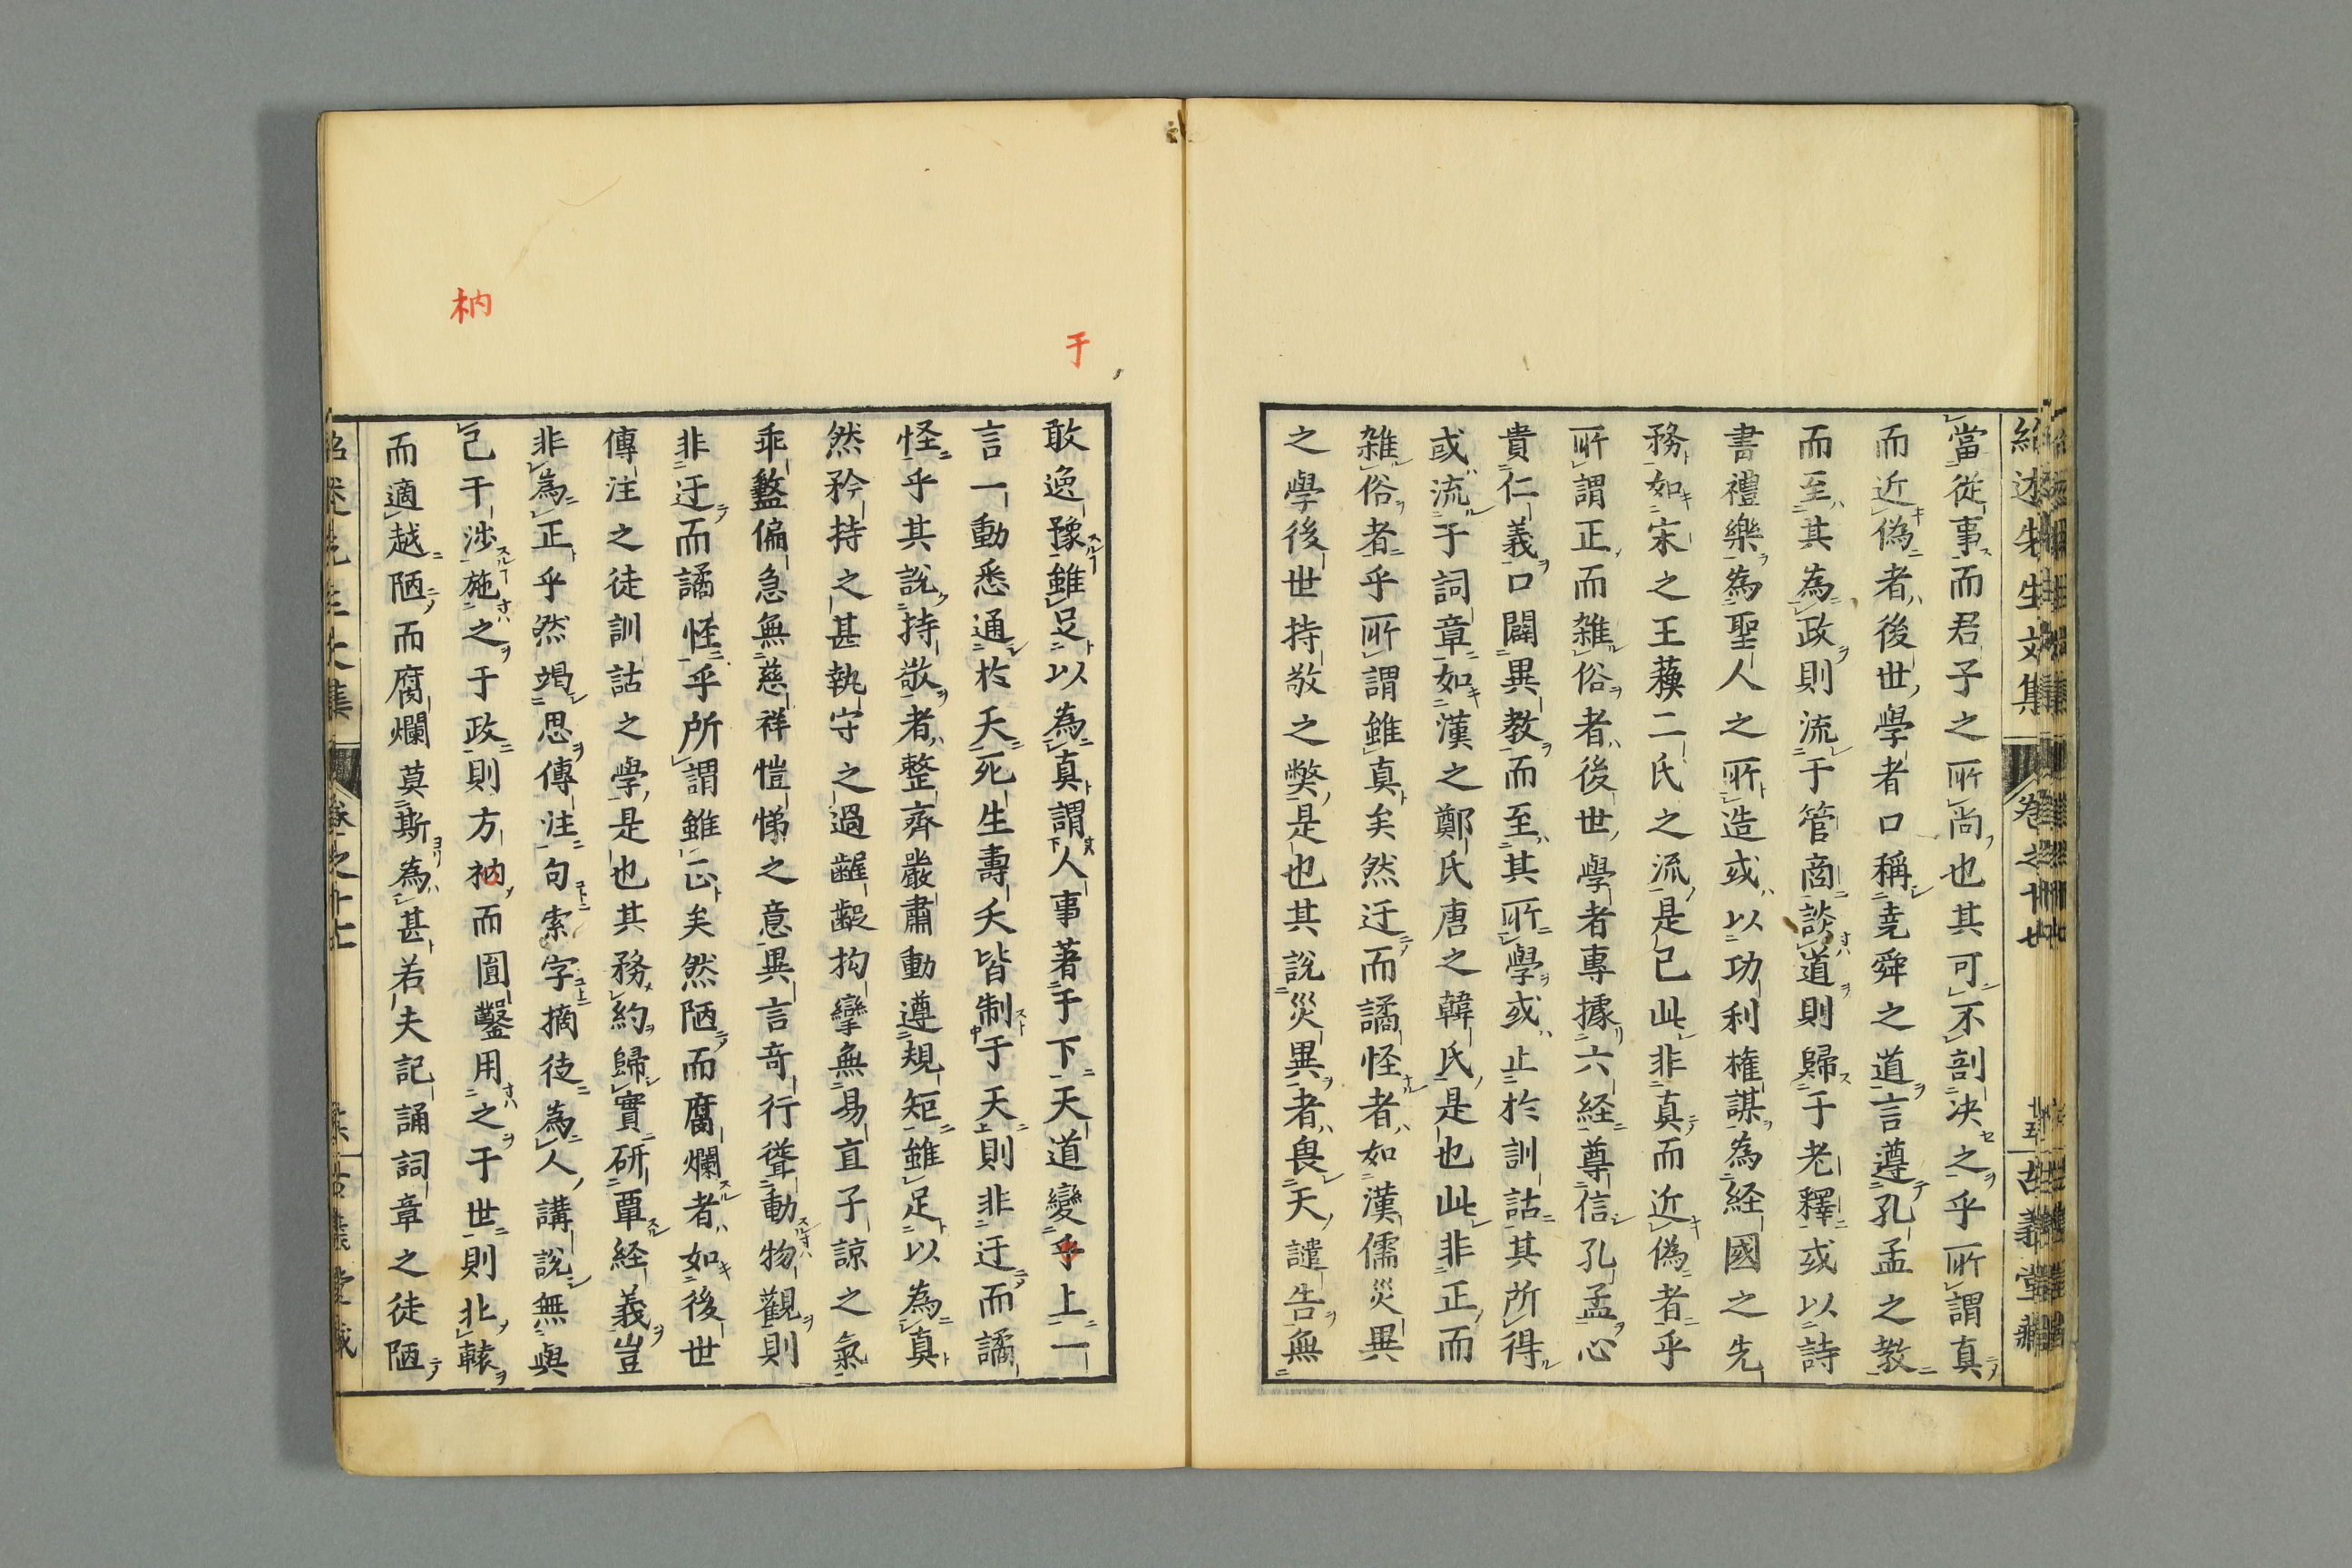 紹述先生文集 卷之十七 古義堂藏
當從事而君子之所尚也其可不剖決之乎所謂真
而近偽者後世學者口稱堯舜之道言遵孔孟之教
而至其為政則流于管商談道則歸于老釋或以詩
書禮樂為聖人之所造或以功利權謀為経國之先
務如宋之王蘓二氏之流是已此非真而近偽者乎
所謂正而雜俗者後世學者專據六経尊信孔孟心
貴仁義口闢異教而至其所學或止於訓詁其所得
或流于詞章如漢之鄭氏唐之韓氏是也此非正而
雜俗者乎所謂雖真矣然迂而譎怪者如漢儒災異
之學後世持敬之獘是也其說災異者畏天譴告無
于
敢逸豫雖足以為真謂人事著于下天道變乎上一
言一動悉通於天死生壽夭皆制于天則非迂而譎
怪乎其說持敬者整齊嚴肅動遵規矩雖足以為真
然矜持之甚執守之過齷齪拘攣無易直子諒之氣
乖盭偏急無慈祥愷悌之意異言奇行聳動物觀則
非迂而譎怪乎所謂雖正矣然陋而腐爛者如後世
傳注之徒訓詁之學是也其務約歸實研覃経義豈
非為正乎然竭思傳注句索字摘徒為人講說無與
己干渉施之于政則方枘而圓鑿用之于世則北轅
而適越陋而腐爛莫斯為甚若夫記誦詞章之徒陋
枘
卷之十七